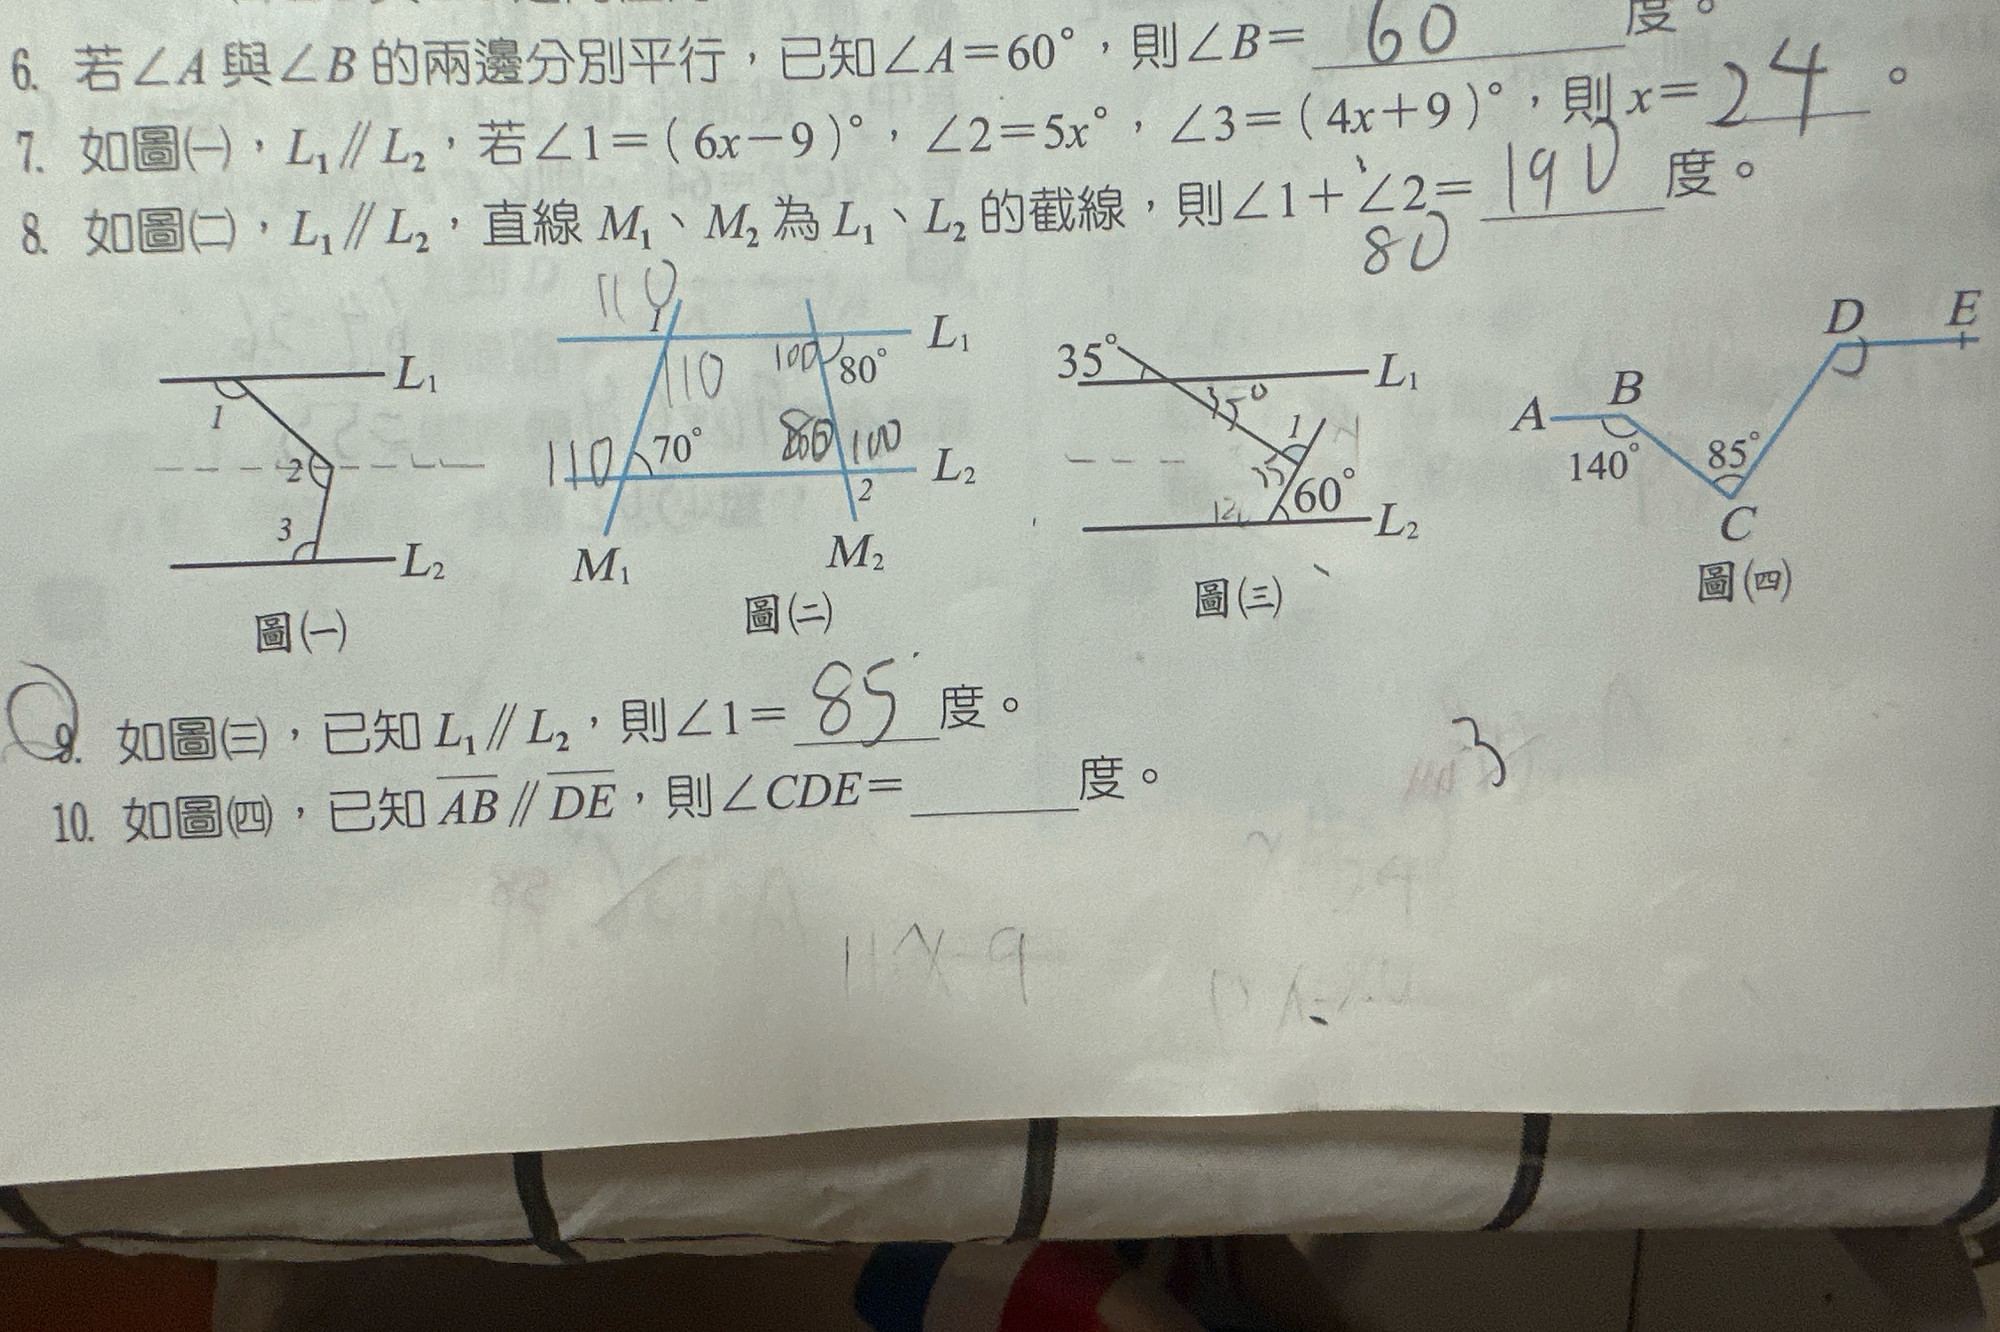 6. 若∠A與∠B的兩邊分別平行，已知∠A=60°，則∠B= 60 度。
7. 如圖㈠，L₁∥L₂，若∠1=(6x−9)°，∠2=5x°，∠3=(4x+9)°，則x= 24 °
8. 如圖㈡，L₁∥L₂，直線M₁、M₂為L₁、L₂的截線，則∠1+∠2= 190 度。
80
L₁
1
2
3
L₂
圖㈠
110
1
L₁
110
100
80°
110
70°
80
100
L₂
2
M₁
M₂
圖㈡
35°
L₁
35°
1
35
60°
L₂
圖㈢
D
E
A
B
140°
85°
C
圖㈣
9. 如圖㈢，已知L₁∥L₂，則∠1= 85 度。
3
10. 如圖㈣，已知AB∥DE，則∠CDE=______度。